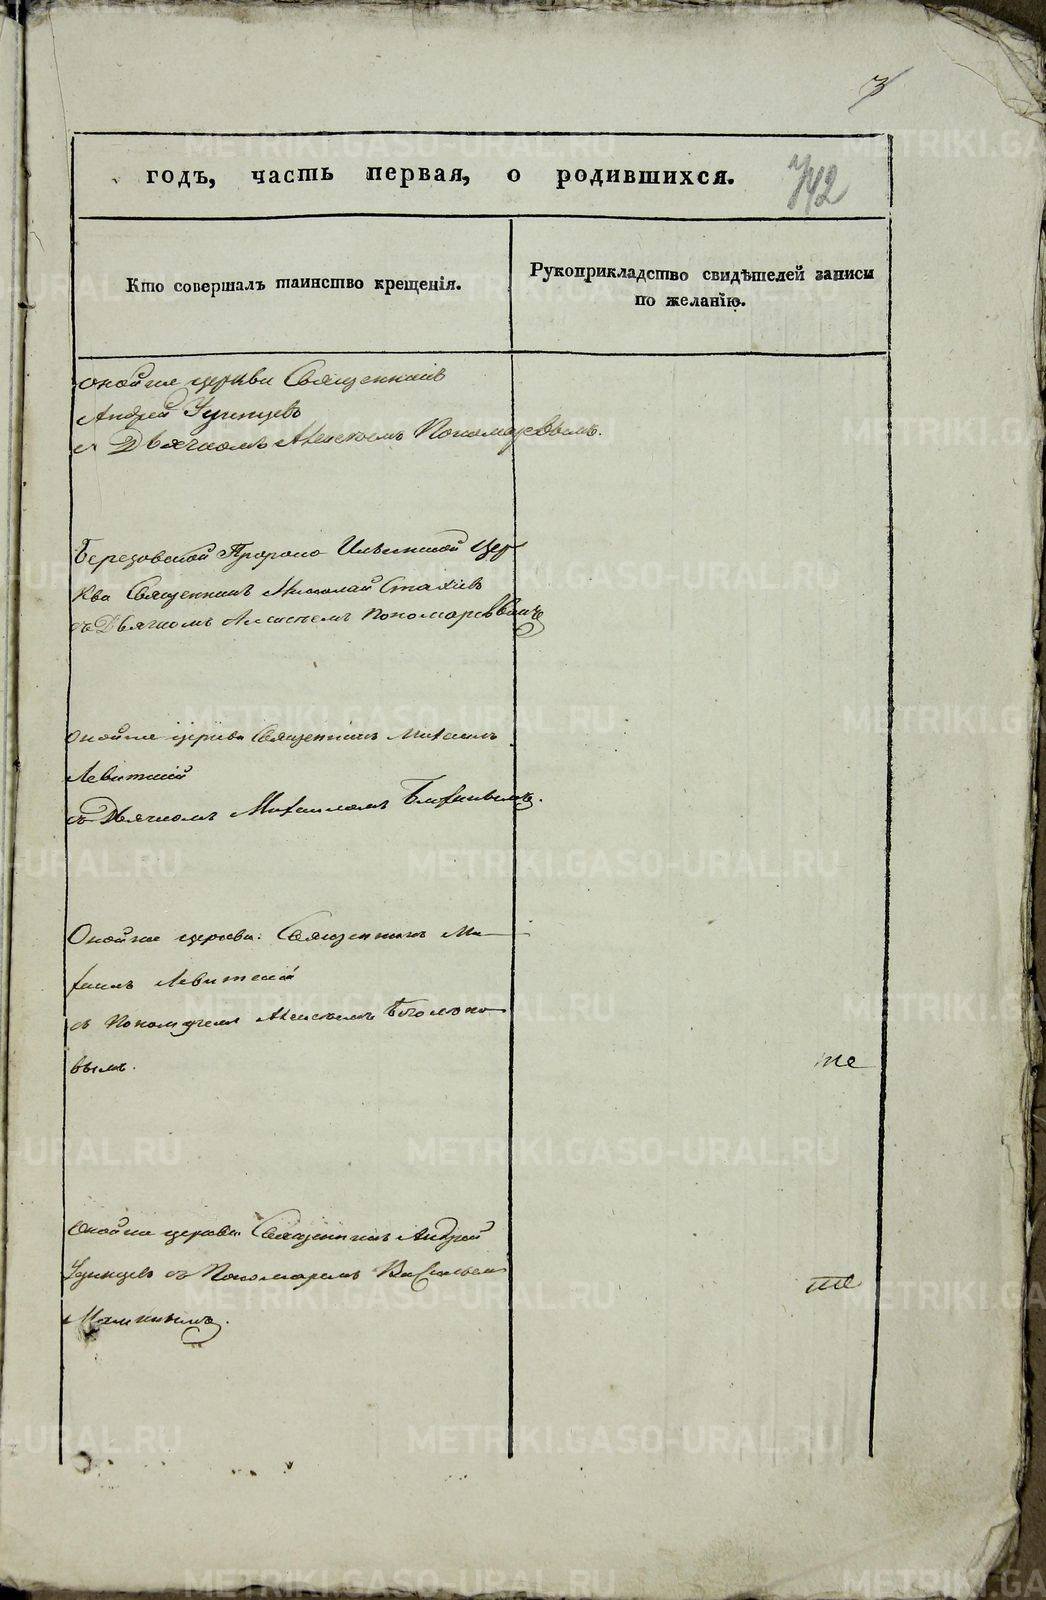 3
годъ, часть первая, о родившихся.
742
Кто совершалъ таинство крещенія.
Рукоприкладство свидѣтелей записи
по желанію.
Оной же церкви Священникъ
Андрей Удинцевъ
съ Дьячкомъ Алексѣемъ Пономаревымъ.
Березовской Пророко Ильинской цер
кви Священникъ Николай Стахіевъ
съ Дьячкомъ Алексѣемъ Пономаревымъ
Оной же церкви Священникъ Михаилъ
Левитскій
съ Дьячкомъ Михаиломъ
Оной же церкви Священникъ Ми
хаилъ Левитскій
съ Пономаремъ Алексѣемъ
вымъ.
Оной же церкви Священникъ Андрей
Удинцевъ съ Пономаремъ Васильемъ
METRIKI.GASO-URAL.RU